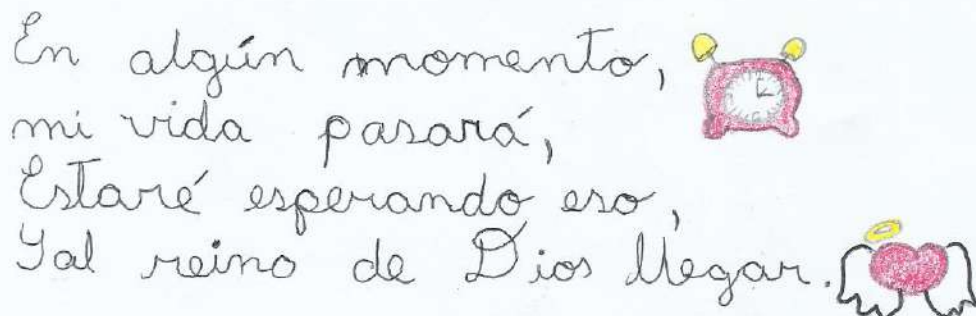 En algún momento,
mi vida pasará,
Estaré esperando eso,
Y al reino de Dios llegar.